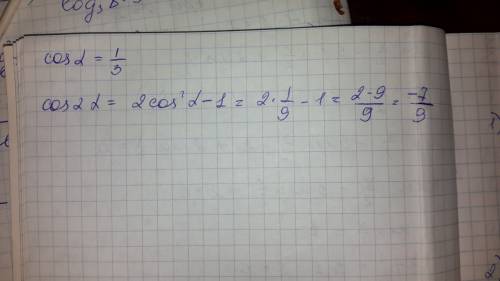 cos α = 1/3
cos 2α = 2cos²α - 1 = 2·1/9 - 1 = 2-9/9 = -7/9